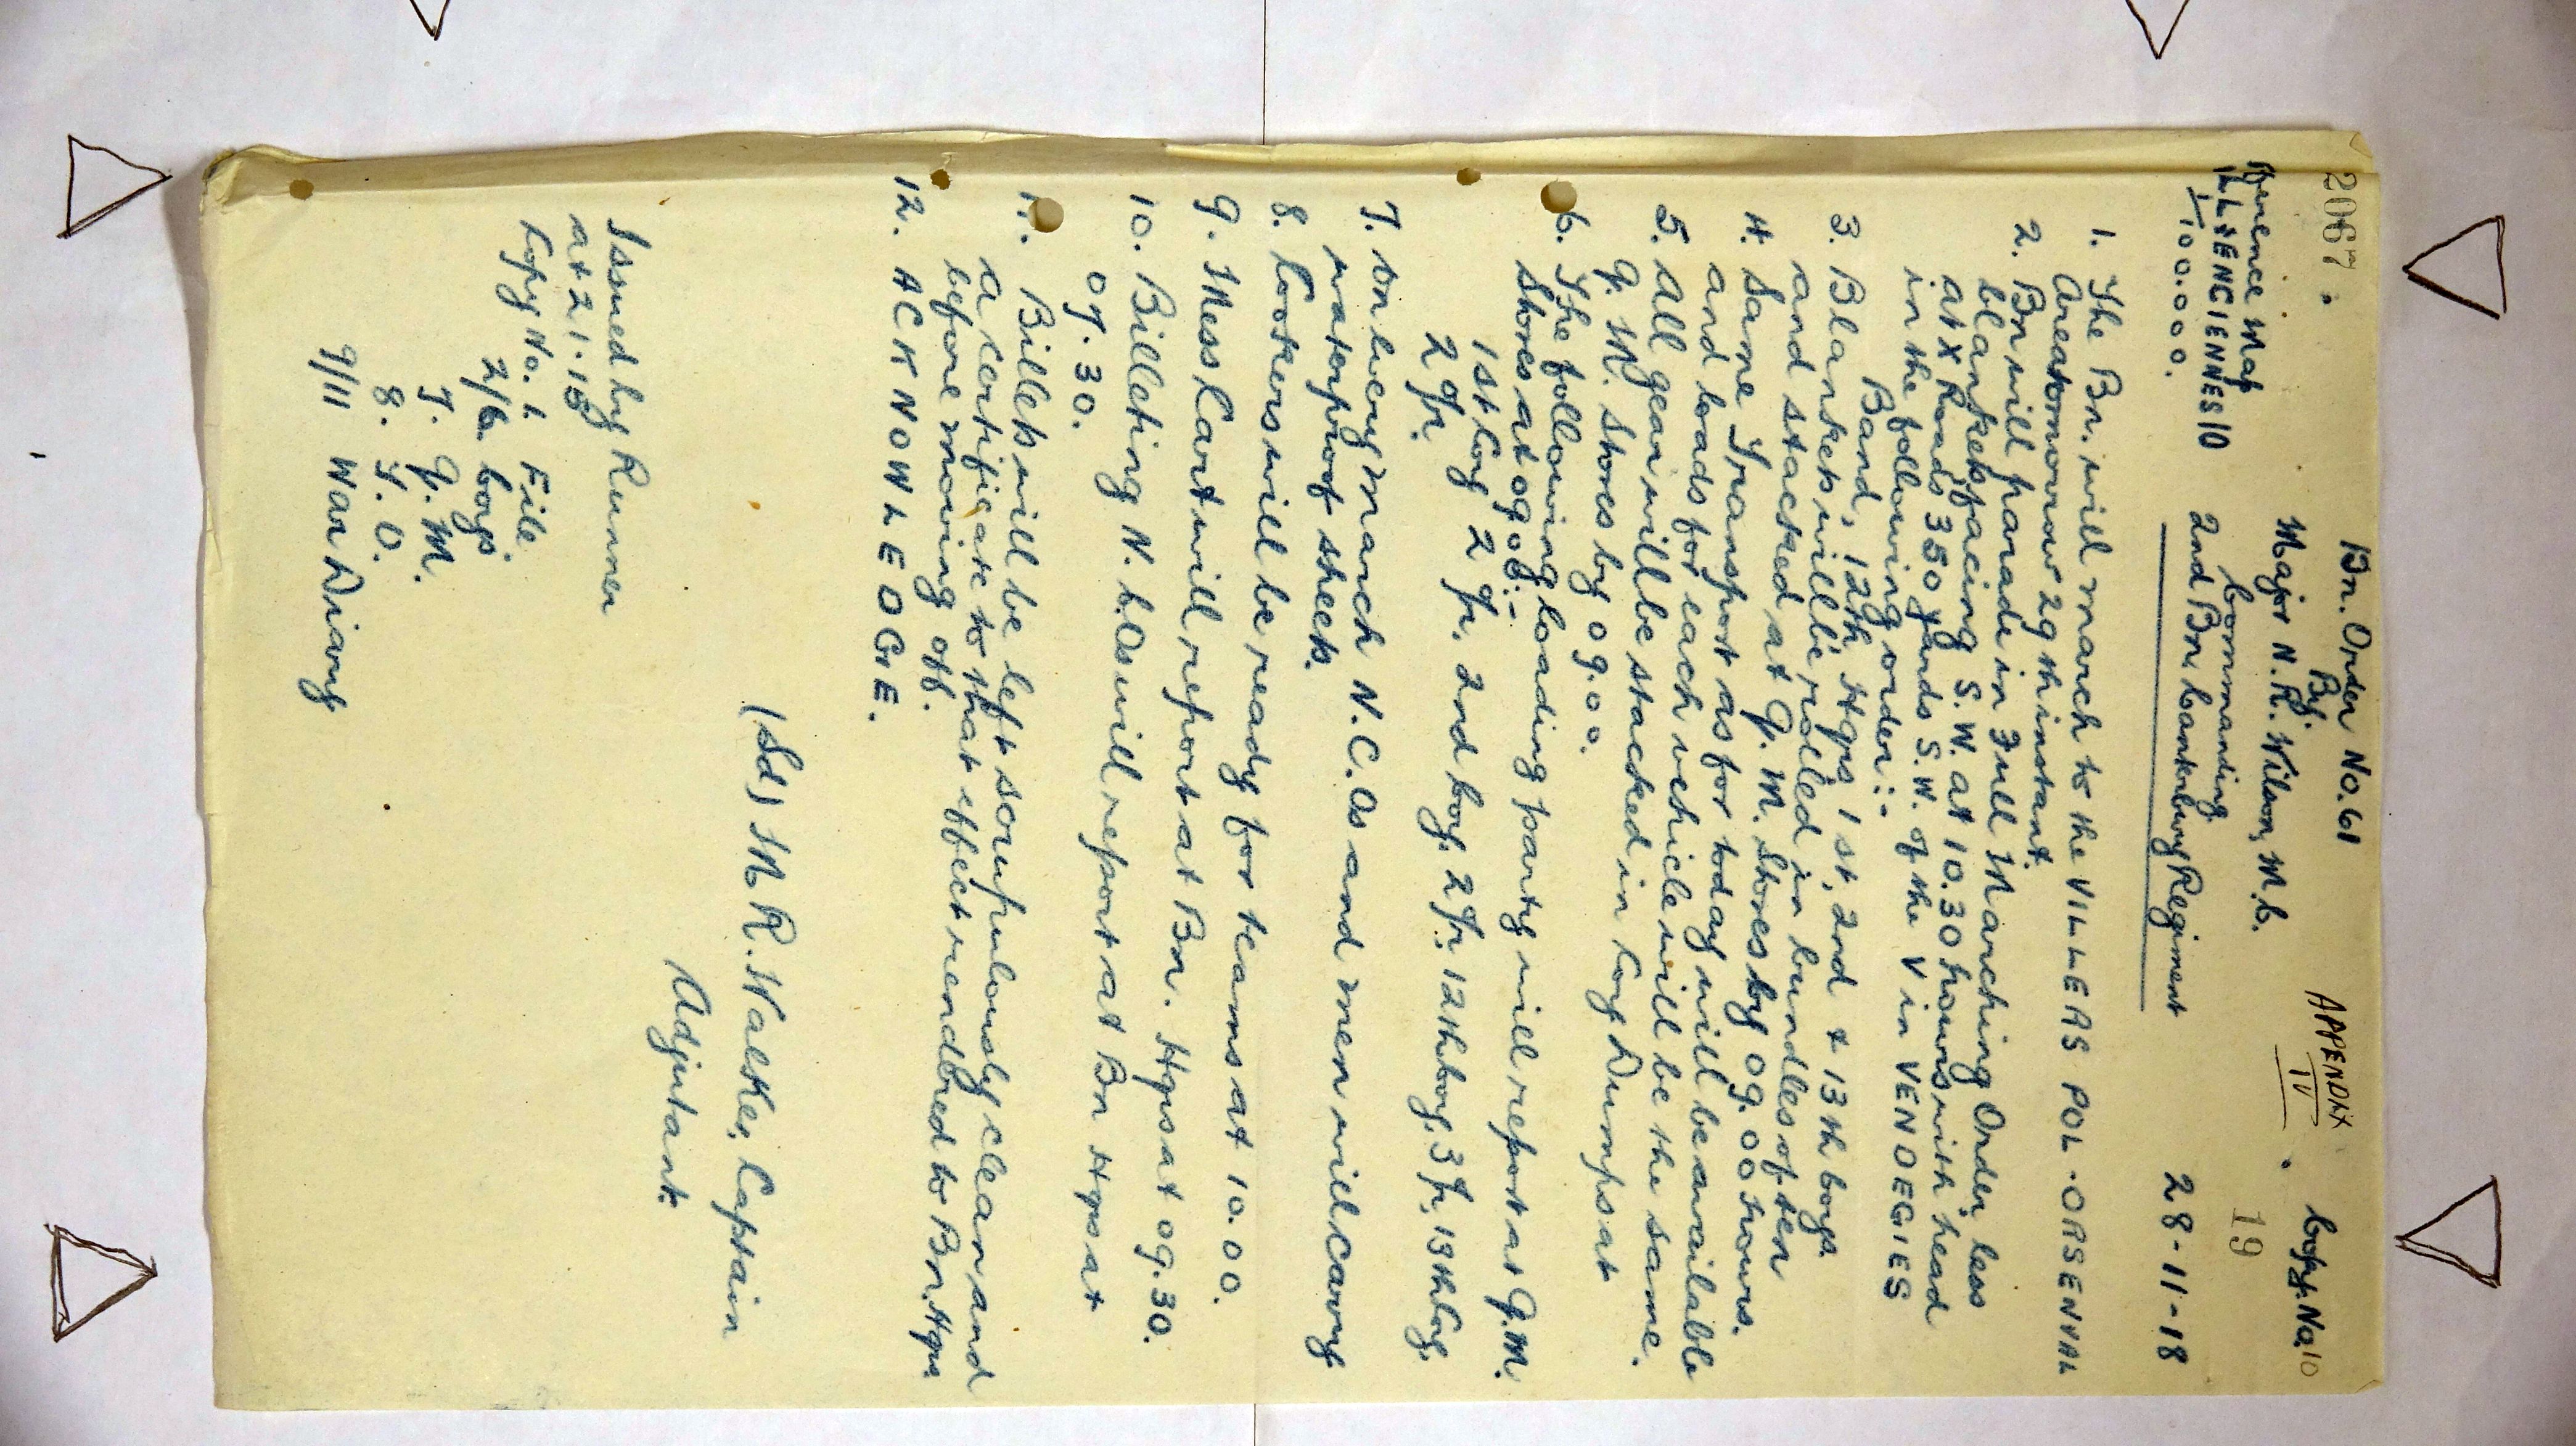 2067.
Bn. Order No. 61
By.
Major N. R. Wilson, M.C.
Commanding
2nd Bn. Canterbury Regiment
APPENDIX
IV
Copy. No. 10
19
28-11-18
Map
VALENCIENNES 10
1/100.000.
1. The Bn. will march to the VILLERS POL - ORSENVAL
Area tomorrow 29th instant.
2. Bn will parade in Full Marching Order, less
blankets, facing S.W. at 10.30 hours with head
at X Roads 350 yards S.W. of the V in VENDEGIES
in the following order:-
Band, 12th, Hqrs, 1st, 2nd & 13th Coys.
3. Blankets will be rolled in bundles of ten
and stacked at Q. M. Stores by 09.00 hours.
4. Same Transport as for today will be available
and loads for each vehicle will be the same.
5. All gear will be stacked in Coy Dumps at
Q. M. Stores by 09.00.
6. The following loading party will report at Q.M.
Stores at 09.00:-
1st Coy 2 Fr. 2nd Coy. 2 Fr. 12th Coy. 3 Fr. 13th Coy.
2 Fr.
7. On every march N.C.Os and men will carry
waterproof sheets.
8. Cookers will be ready for teams at 10.00.
9. Mess Cart will report at Bn. Hqrs at 09.30.
10. Billeting N.C.Os will report at Bn Hqrs at
07.30.
11. Billets will be left scrupulously clean and
a certificate to that effect rendered to Bn. Hqrs.
before moving off.
12. ACKNOWLEDGE.
(Sd) M R. Walker, Captain
Adjutant.
Issued by Runner
at 21.15
Copy No. 1. File
2/6. Coys.
7. Q. M.
8. T. O.
9/11 War Diary